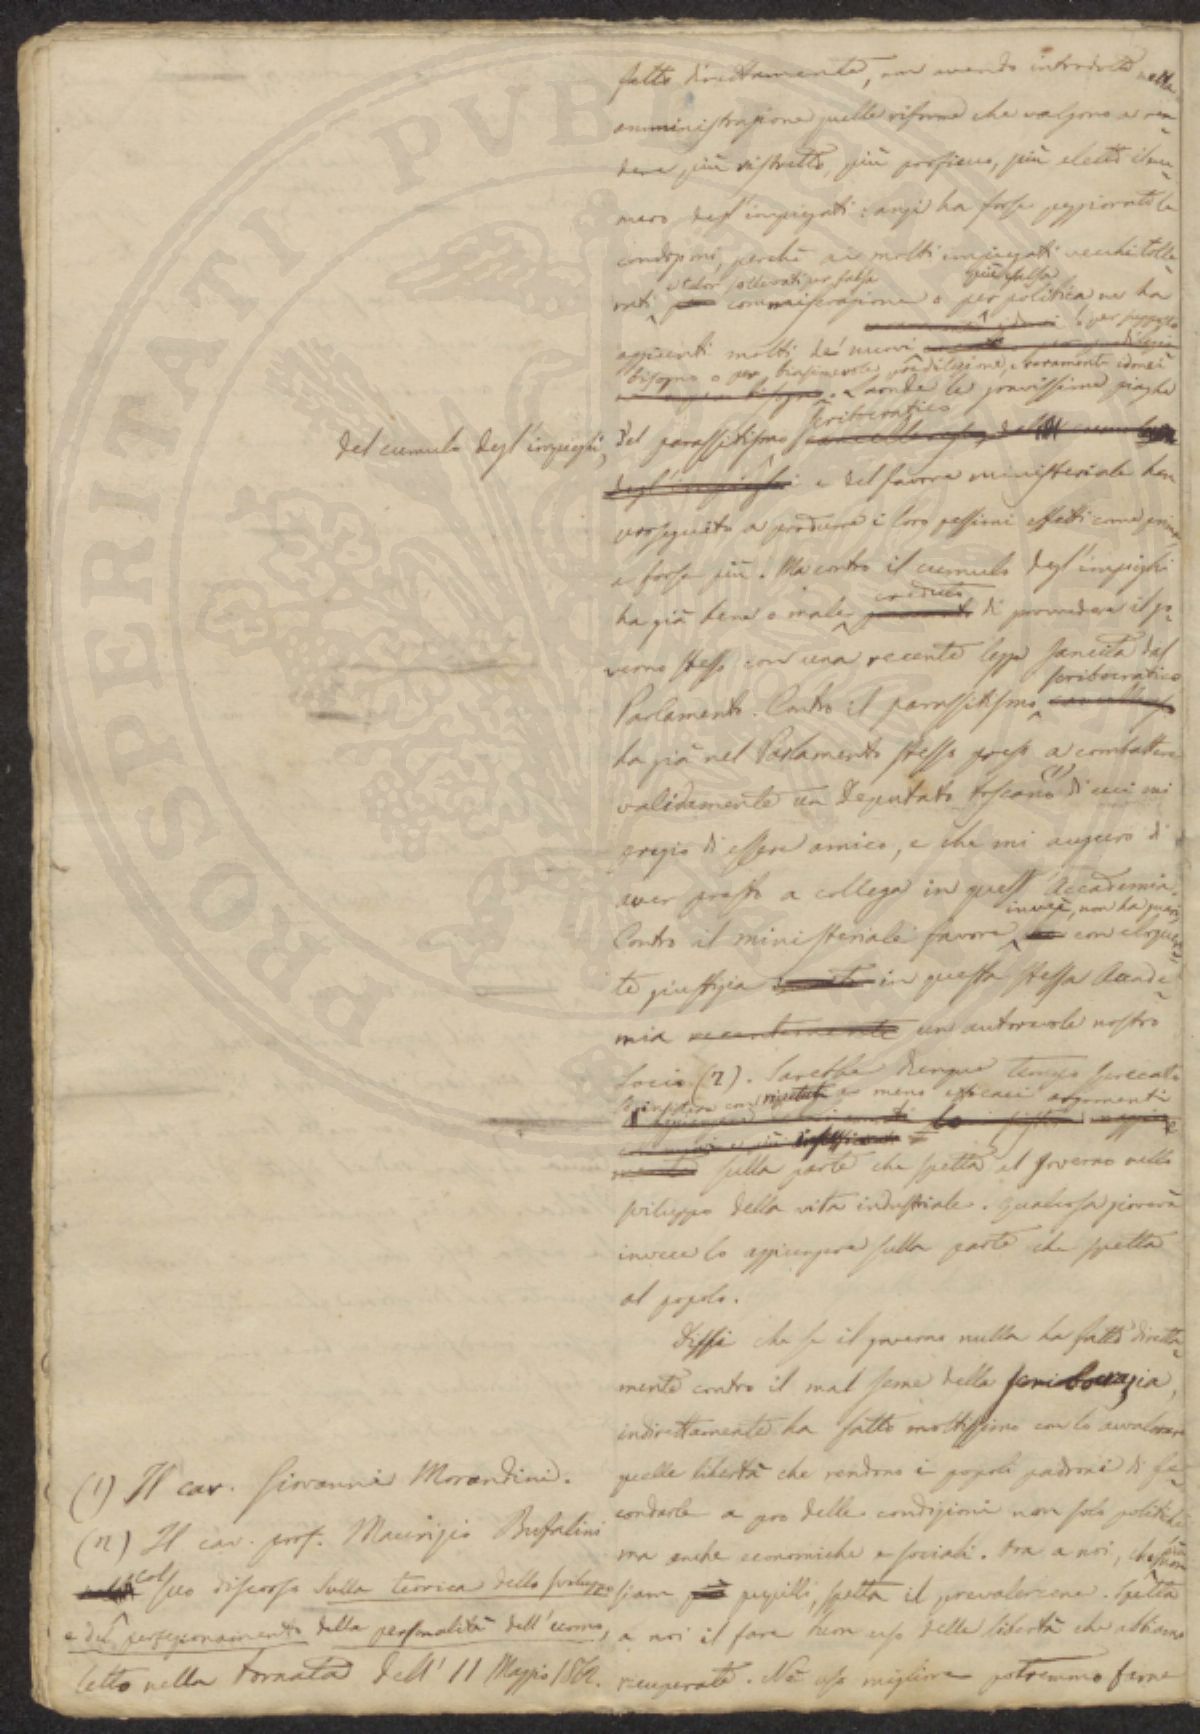 fatto direttamente, non avendo introdotto nella
amministrazione quelle riforme che valgono a ren-
dere più ristretto, più proficuo, più eletto il nu-
mero degl'impiegati: anzi ha forse peggiorato le
condizioni, perchè ai molti impiegati vecchi tolle-
rati e talor sollevati per falsa commiserazione o per più falsa politica ne ha
aggiunti molti de' nuovi o per supposto
bisogno o per biasimevole predilezione, e raramente idonei
. Laonde le gravissime piaghe
del cumulo degl'impieghi, del parassitismo scribocratico
e del favore ministeriale han
proseguito a produrre i loro pessimi effetti come prima,
e forse più. Ma contro il cumulo degl'impieghi
ha già bene o male creduto di provvedere il go-
verno stesso con una recente legge sancita dal
Parlamento. Contro il parassitismo scribocratico
ha già nel Parlamento stesso preso a combattere
validamente un Deputato toscano (1) di cui mi
pregio di essere amico, e che mi auguro di
aver presto a collega in quest'Accademia.
Contro il ministeriale favore invece, non ha guari, con eloquen-
te giustizia in questa stessa Accade-
mia un autorevole nostro
Socio (2). Sarebbe dunque tempo sprecato
lo insistere con ripetuti e meno efficaci argomenti
sulla parte che spetta al governo nello
sviluppo della vita industriale. Qualcosa gioverà
invece lo aggiungere sulla parte che spetta
al popolo.
Dissi che se il governo nulla ha fatto diretta-
mente contro il mal seme della scribocrazia,
indirettamente ha fatto moltissimo con lo avvalorare
quelle libertà che rendono i popoli padroni di fe-
condarle a pro delle condizioni non solo politiche
ma anche economiche e sociali. Ora a noi, che più non
siam pupilli, spetta il prevalercene. Spetta
a noi il fare buon uso delle libertà che abbiamo
recuperate. Nè uso migliore potremmo farne
(1) Il cav. Giovanni Morandini.
(2) Il cav. prof. Maurizio Bufalini
col suo discorso Sulla teorica dello sviluppo
e del perfezionamento della personalità dell'uomo,
letto nella tornata dell'11 Maggio 1862.